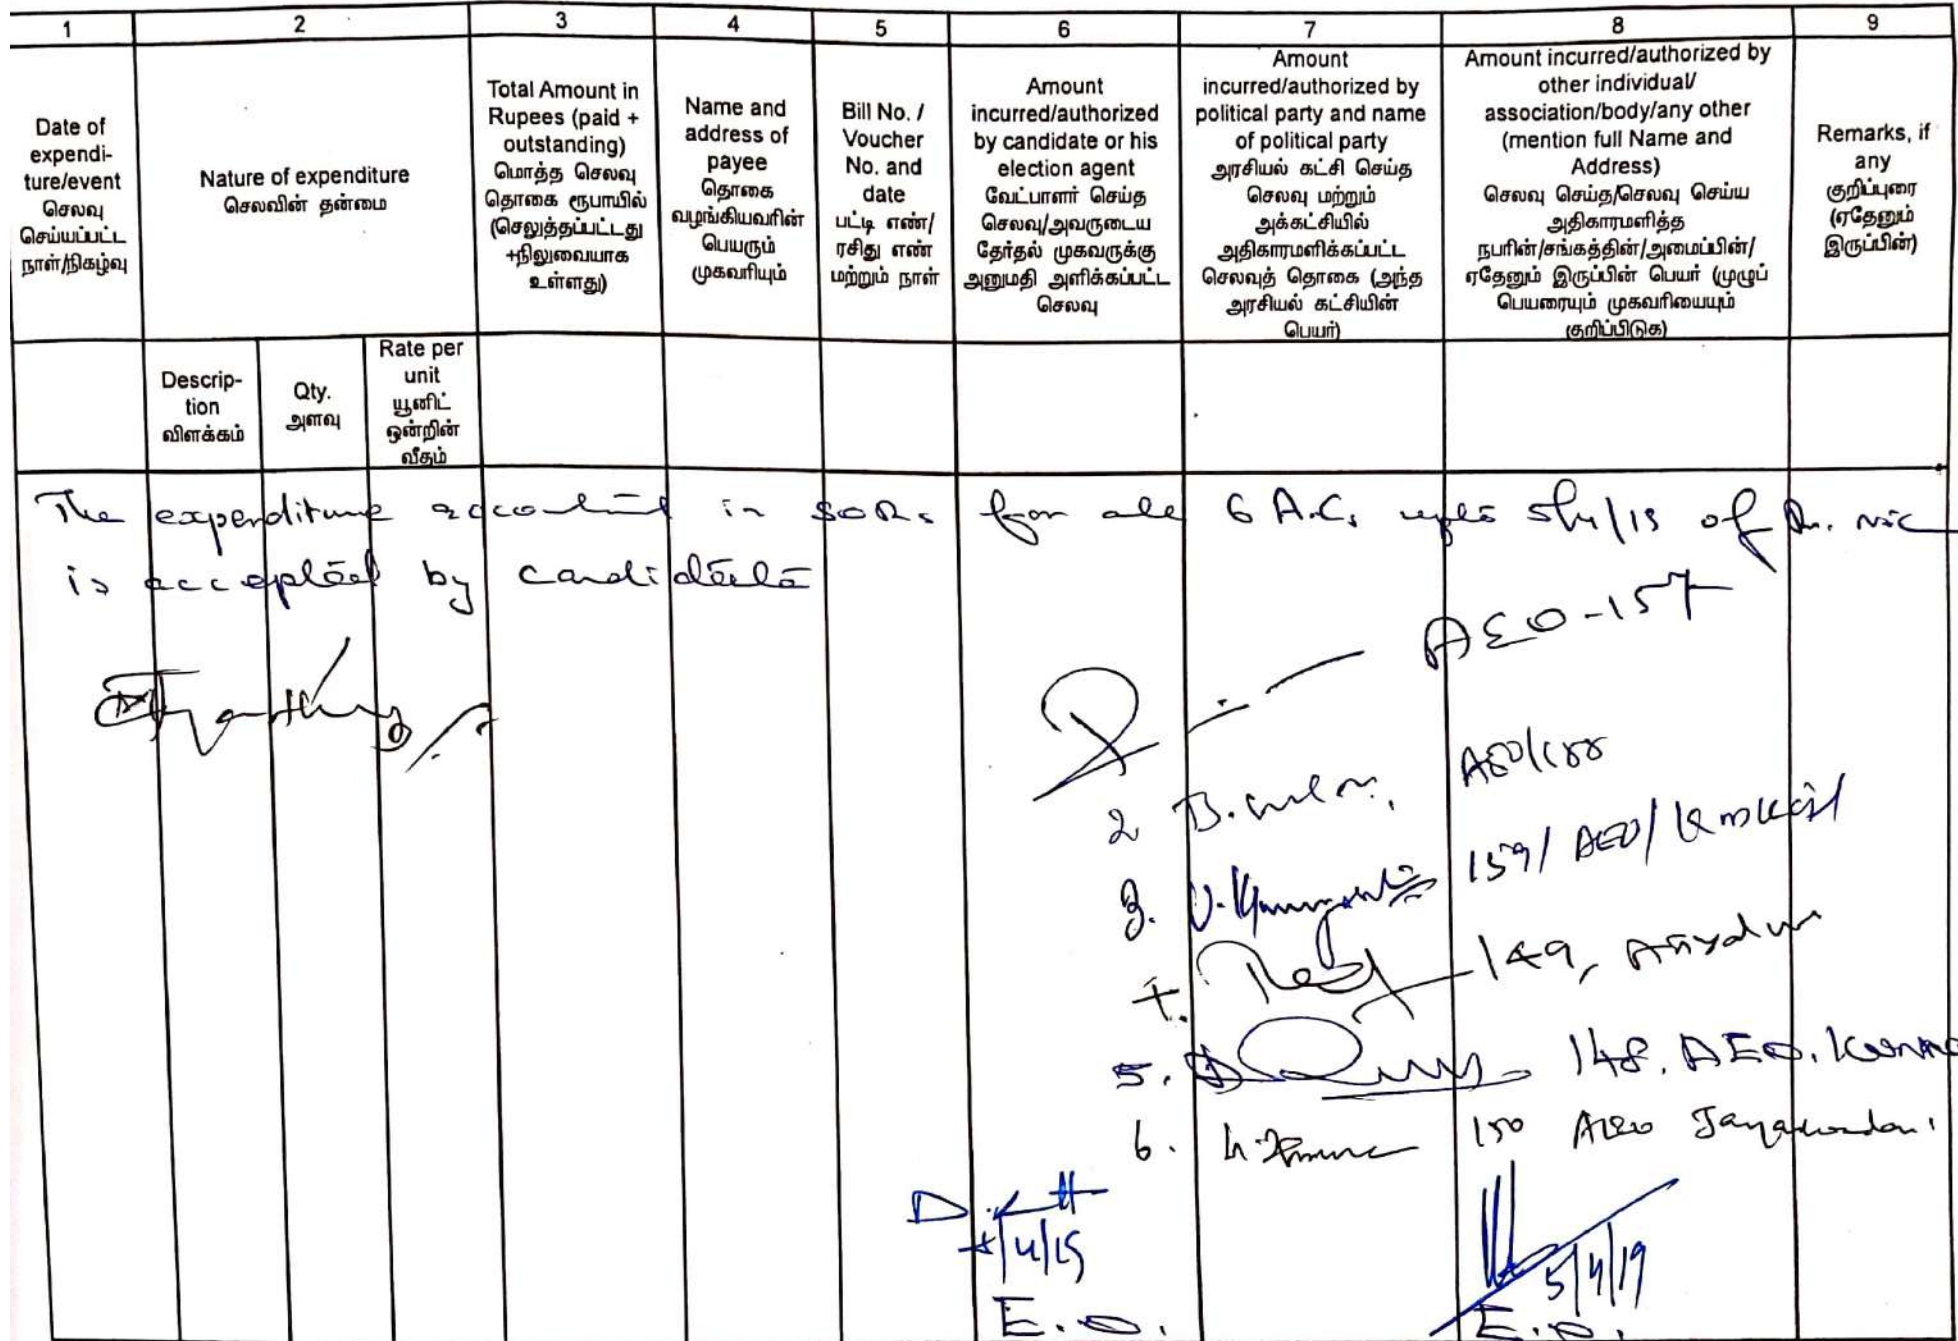 1 2 3 4 5 6 7 8 9
Date of
expendi-
ture/event
செலவு
செய்யப்பட்ட
நாள்/நிகழ்வு
Nature of expenditure
செலவின் தன்மை
Total Amount in
Rupees (paid +
outstanding)
மொத்த செலவு
தொகை ரூபாயில்
(செலுத்தப்பட்டது
+நிலுவையாக
உள்ளது)
Name and
address of
payee
தொகை
வழங்கியவரின்
பெயரும்
முகவரியும்
Bill No. /
Voucher
No. and
date
பட்டி எண்/
ரசிது எண்
மற்றும் நாள்
Amount
incurred/authorized
by candidate or his
election agent
வேட்பாளர் செய்த
செலவு/அவருடைய
தேர்தல் முகவருக்கு
அனுமதி அளிக்கப்பட்ட
செலவு
Amount
incurred/authorized by
political party and name
of political party
அரசியல் கட்சி செய்த
செலவு மற்றும்
அக்கட்சியில்
அதிகாரமளிக்கப்பட்ட
செலவுத் தொகை (அந்த
அரசியல் கட்சியின்
பெயர்)
Amount incurred/authorized by
other individual/
association/body/any other
(mention full Name and
Address)
செலவு செய்த/செலவு செய்ய
அதிகாரமளித்த
நபரின்/சங்கத்தின்/அமைப்பின்/
ஏதேனும் இருப்பின் பெயர் (முழுப்
பெயரையும் முகவரியையும்
குறிப்பிடுக)
Remarks, if
any
குறிப்புரை
(ஏதேனும்
இருப்பின்)
Descrip-
tion
விளக்கம்
Qty.
அளவு
Rate per
unit
யூனிட்
ஒன்றின்
வீதம்
The expenditure account in SORs for all 6 A.C. upto 5/4/19 of
is accepted by candidate
AEO-157
2 AEO/158
3. 159/AEO/
4. 149, Ariyalur
5. 148. AEO.
6. 150 AEO Jayakondam.
5/4/19
E.O.
5/4/19
E.O.